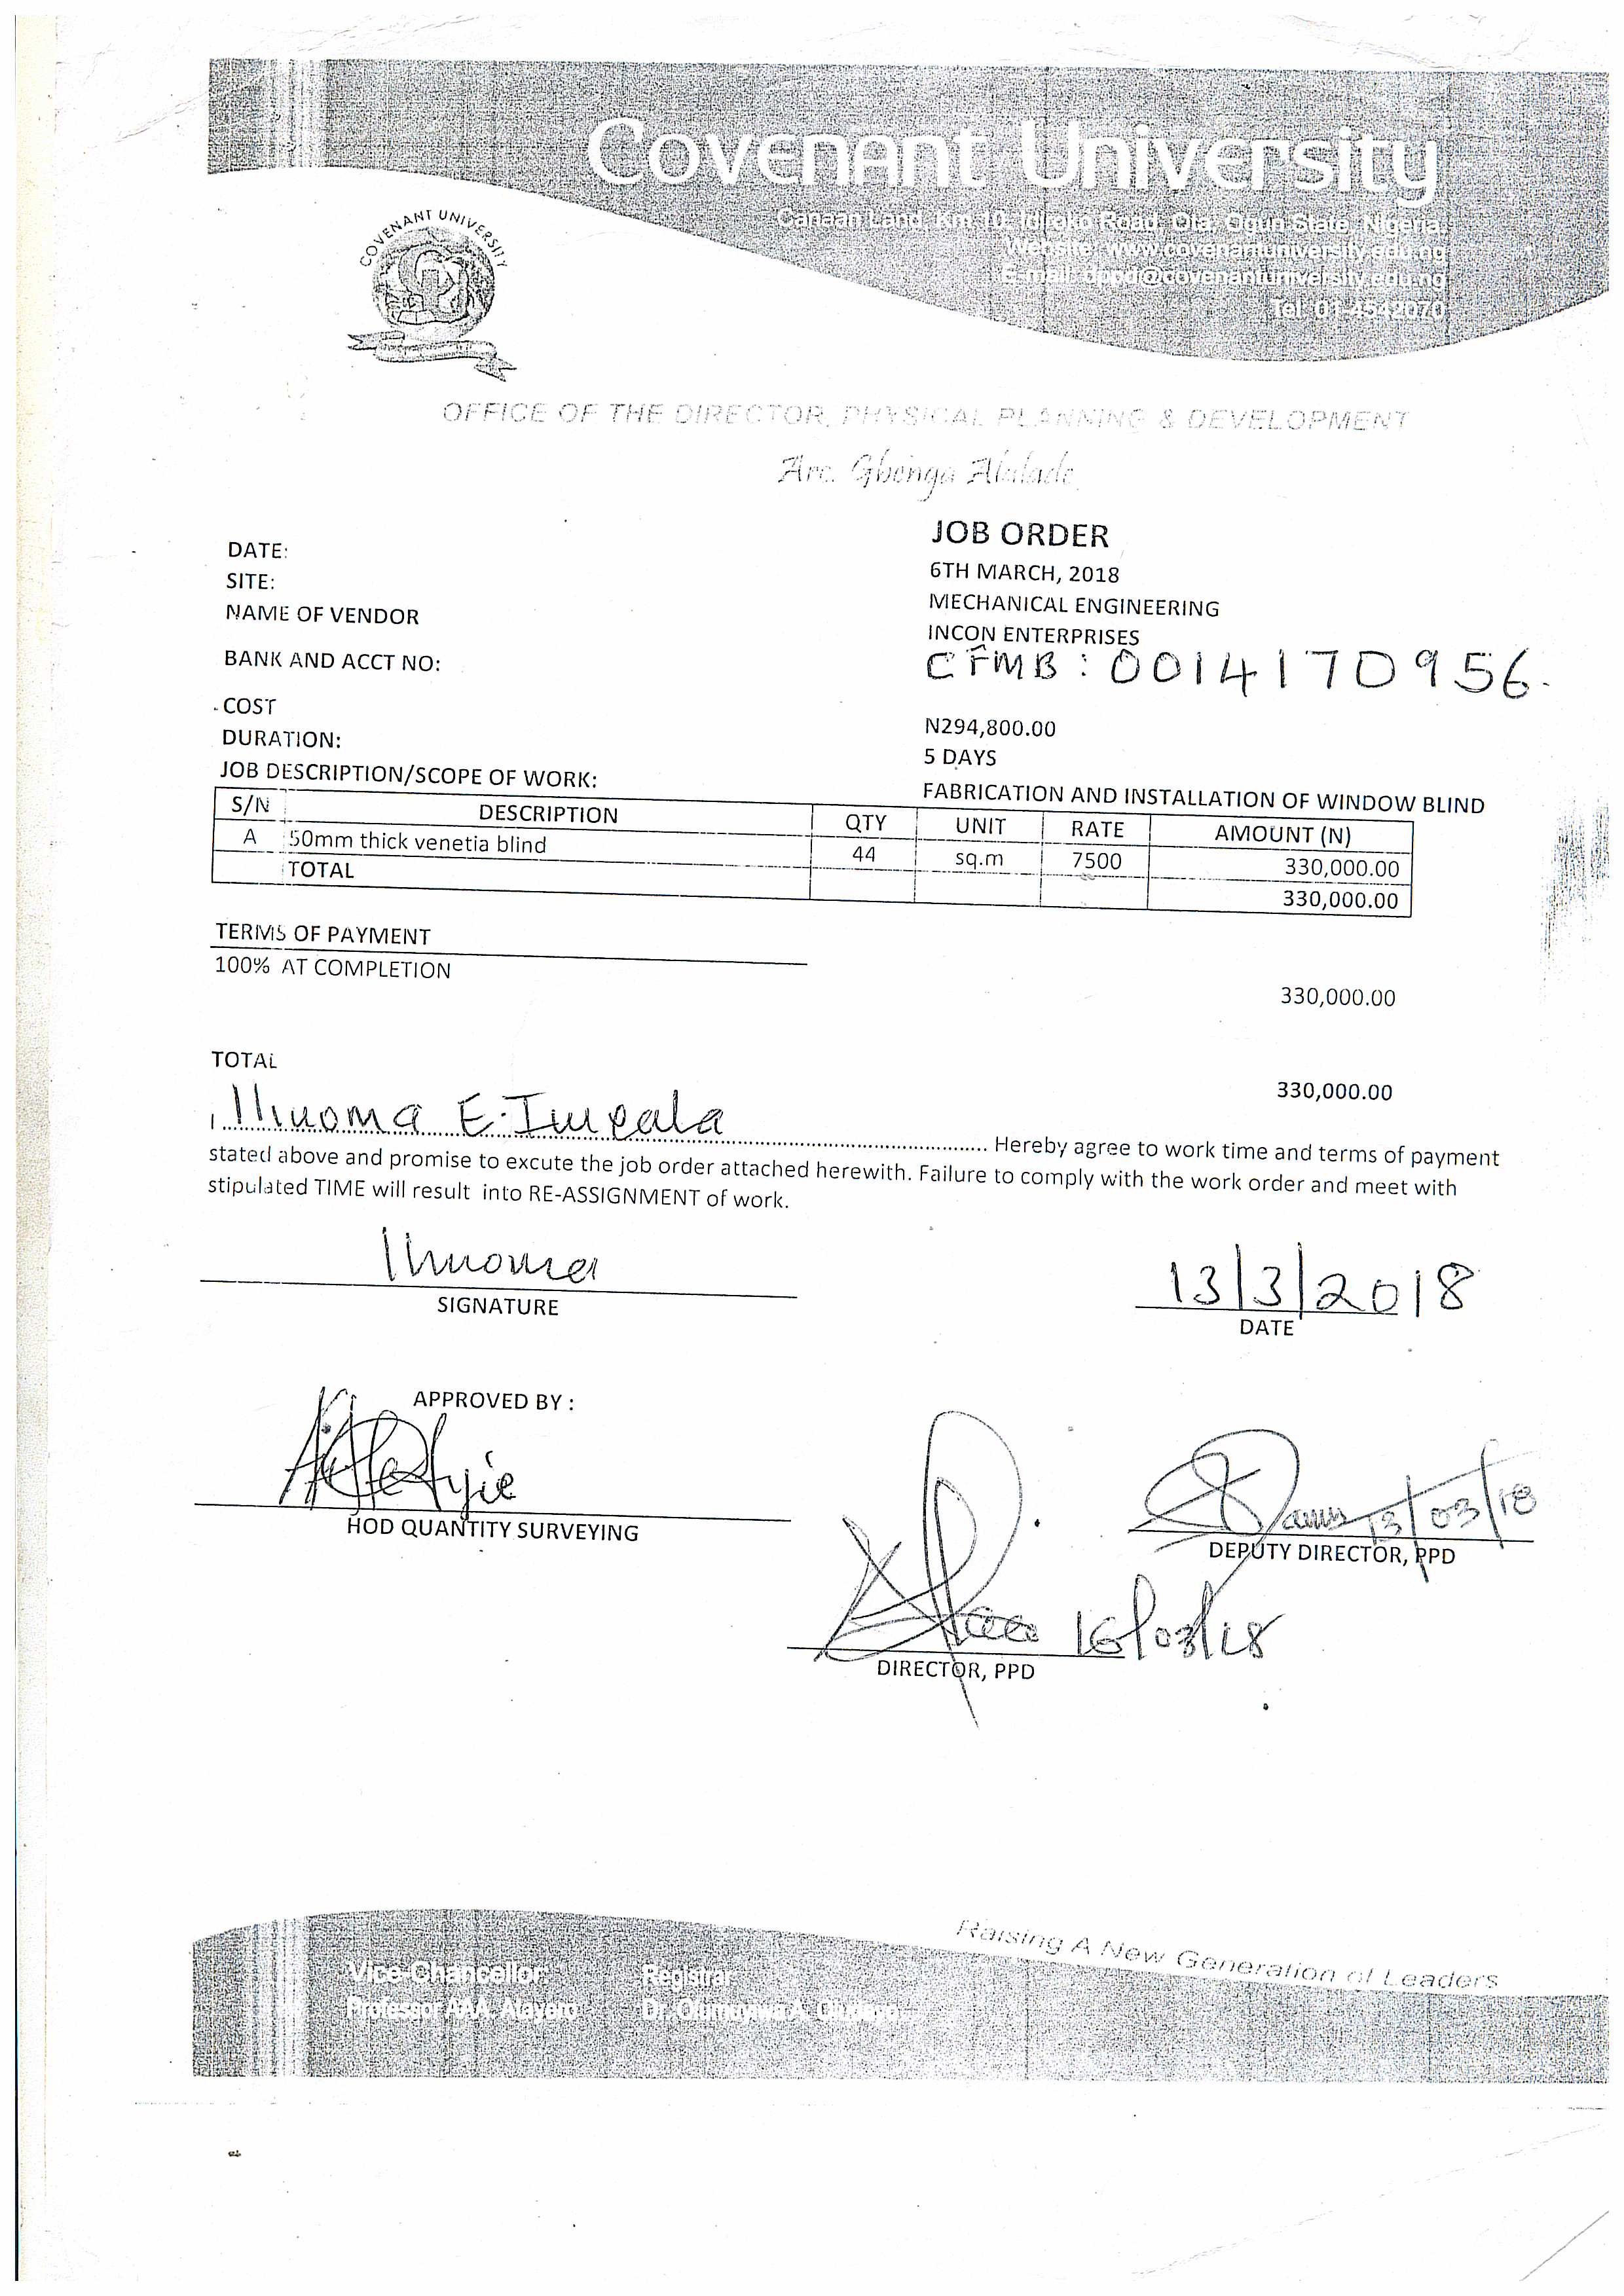 Covenant University
Canaan Land, Km 10, Idiroko Road, Ota, Ogun State, Nigeria
Website: www.covenantuniversity.edu.ng
E-mail: dppd@covenantuniversity.edu.ng
Tel: 01-4542070
COVENANT UNIVERSITY
OFFICE OF THE DIRECTOR, PHYSICAL PLANNING & DEVELOPMENT
Arc. Gbenga Alalade
JOB ORDER
DATE: 6TH MARCH, 2018
SITE: MECHANICAL ENGINEERING
NAME OF VENDOR INCON ENTERPRISES
BANK AND ACCT NO: CFMB: 0014170956.
COST N294,800.00
DURATION: 5 DAYS
JOB DESCRIPTION/SCOPE OF WORK: FABRICATION AND INSTALLATION OF WINDOW BLIND
S/N DESCRIPTION QTY UNIT RATE AMOUNT (N)
A 50mm thick venetia blind 44 sq.m 7500 330,000.00
TOTAL 330,000.00
TERMS OF PAYMENT
100% AT COMPLETION 330,000.00
TOTAL 330,000.00
I, Ihuoma E. ........ Hereby agree to work time and terms of payment
stated above and promise to excute the job order attached herewith. Failure to comply with the work order and meet with
stipulated TIME will result into RE-ASSIGNMENT of work.
Ihuoma 13/3/2018
SIGNATURE DATE
APPROVED BY :
13/03/18
HOD QUANTITY SURVEYING DEPUTY DIRECTOR, PPD
16/03/18
DIRECTOR, PPD
Raising A New Generation of Leaders
Vice-Chancellor: Registrar
Professor AAA. Atayero Dr. Olumuyiwa A.